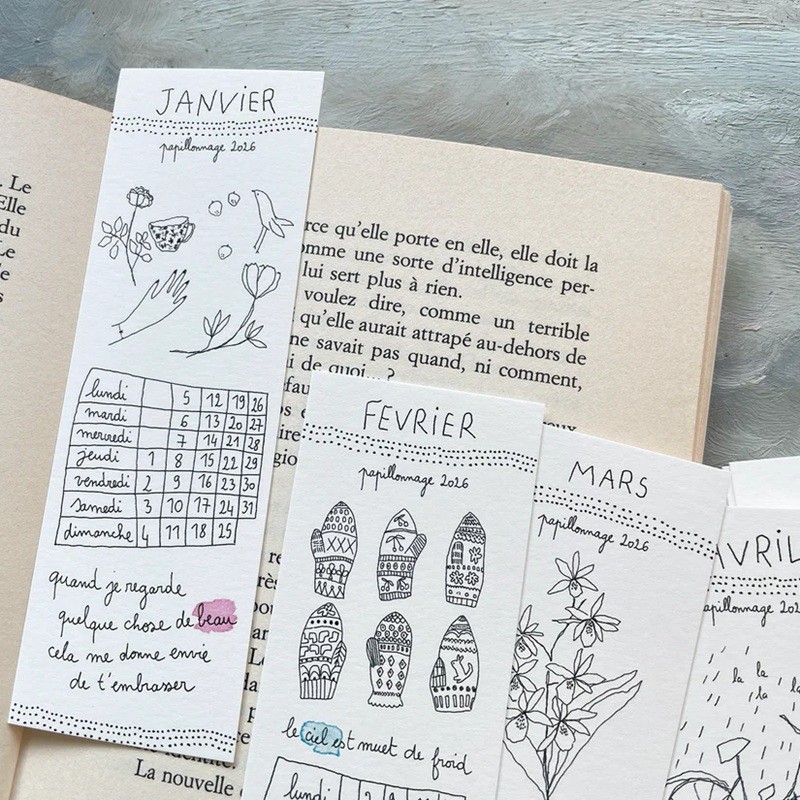 . Le
Elle
du
Le
JANVIER
papillonnage 2026
lundi 5 12 19 26
mardi 6 13 20 27
mercredi 7 14 21 28
jeudi 1 8 15 22 29
vendredi 2 9 16 23 30
samedi 3 10 17 24 31
dimanche 4 11 18 25
quand je regarde
quelque chose de beau
cela me donne envie
de t'embrasser
rce qu'elle porte en elle, elle doit la
omme une sorte d'intelligence per-
lui sert plus à rien.
voulez dire, comme un terrible
qu'elle aurait attrapé au-dehors de
ne savait pas quand, ni comment,
i de quoi...?
La nouvelle
FÉVRIER
papillonnage 2026
le ciel est muet de froid
lundi
MARS
papillonnage 2026
AVRIL
papillonnage 202
la la la
la